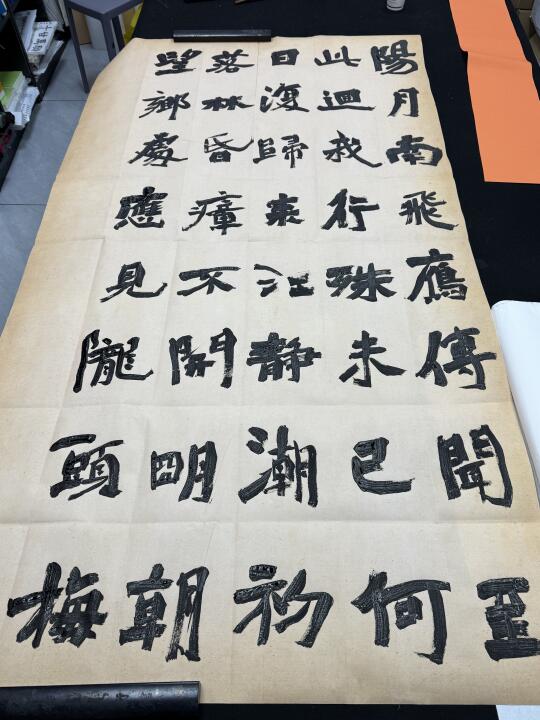 陽月南飛鴈傳聞至
此迴我行殊未已何
日復歸來江静潮初
落林昏瘴不開明朝
望鄉處應見隴頭梅